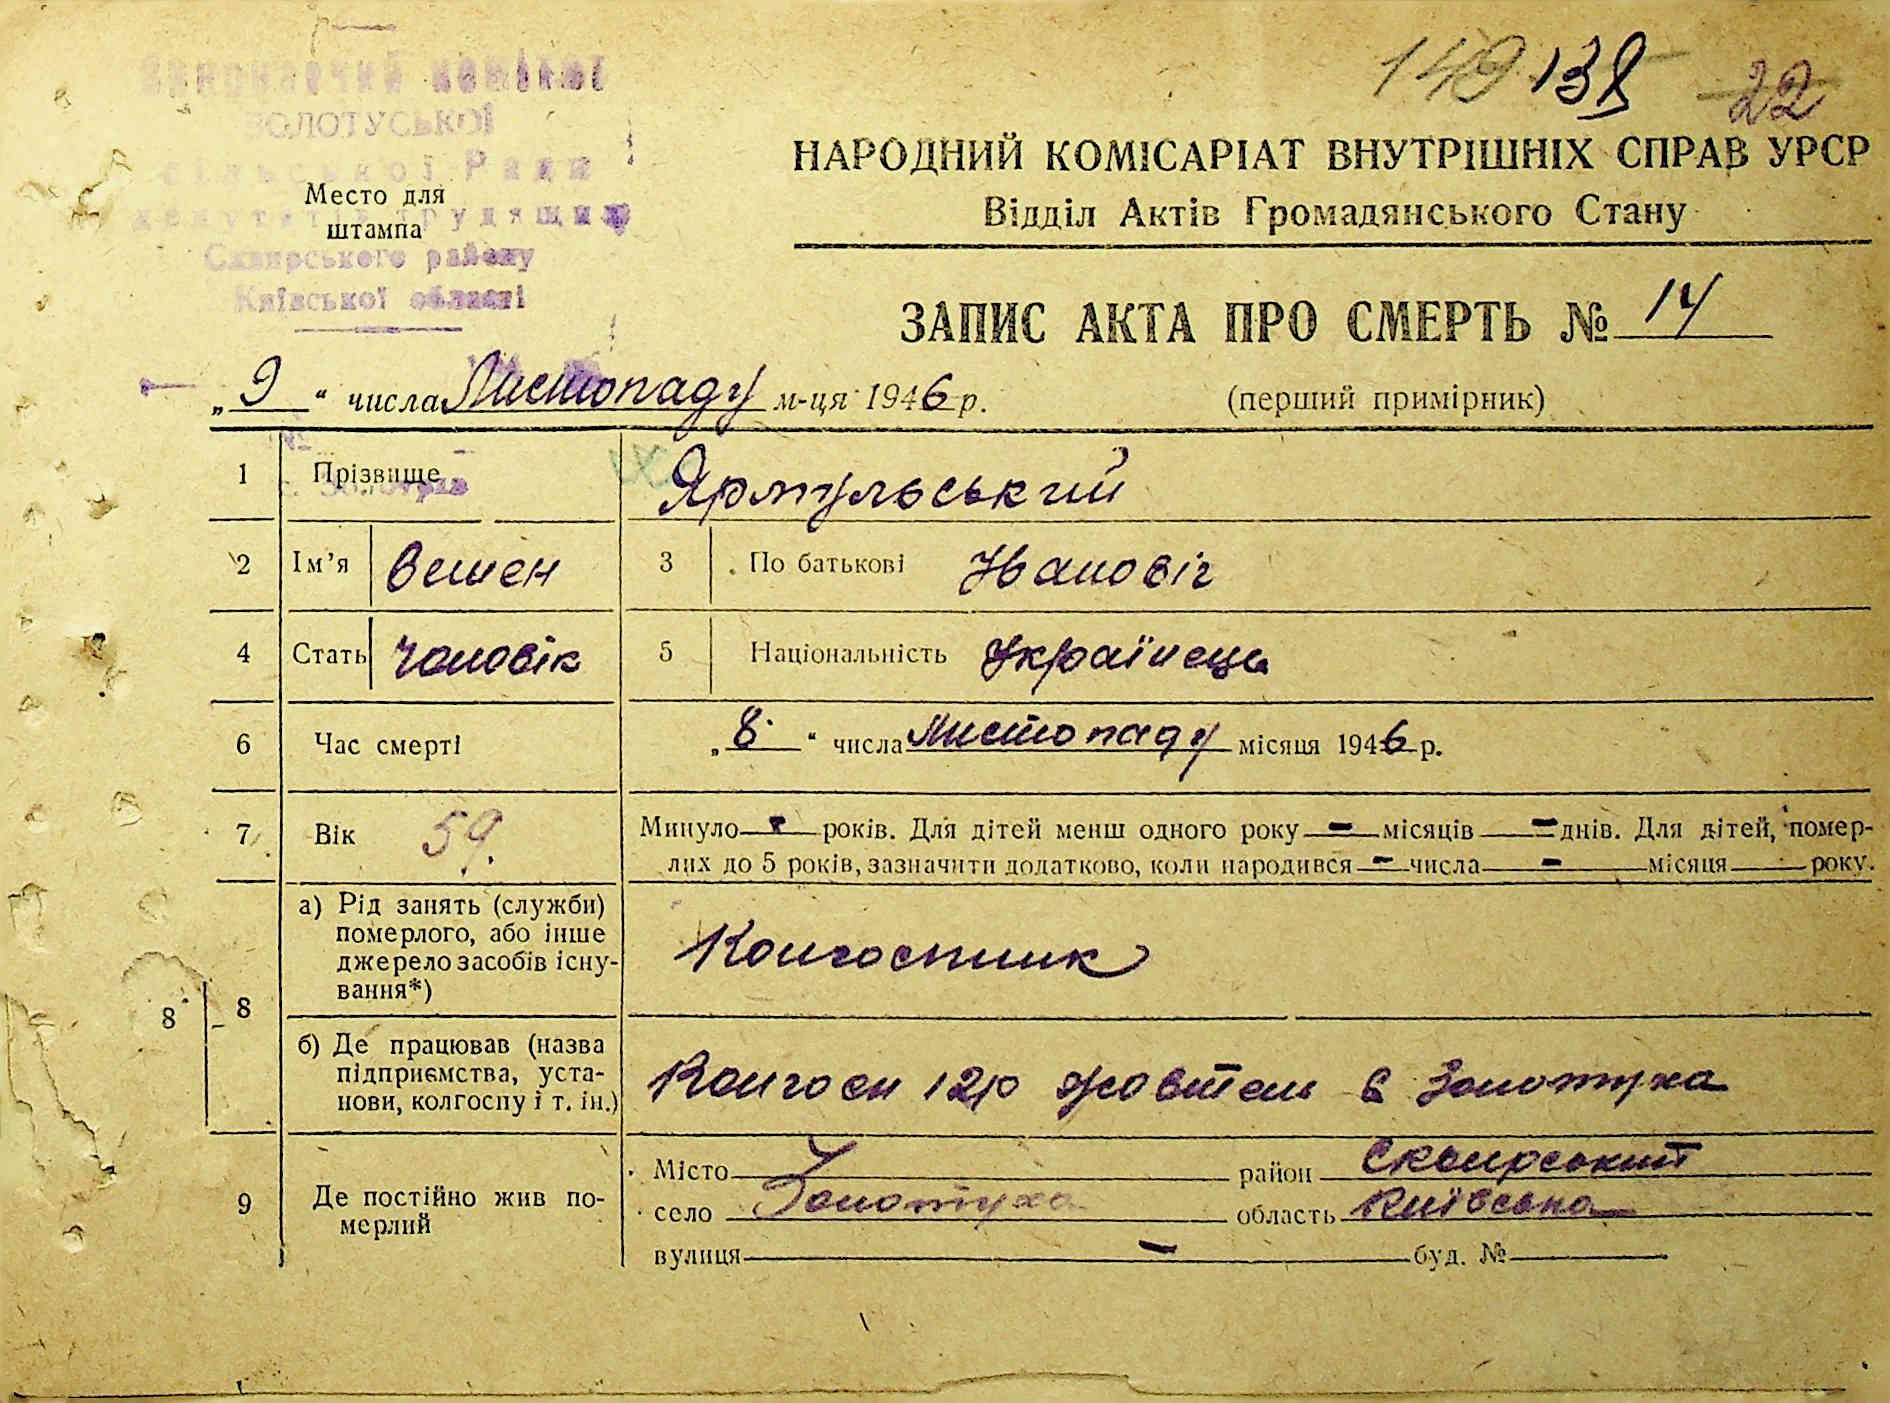 149 138 22
Виконавчий комітет
ЗОЛОТУСЬКОЇ
сільської Ради
депутатів трудящих
Сквирського району
Київської області
Место для
штампа
НАРОДНИЙ КОМІСАРІАТ ВНУТРІШНІХ СПРАВ УРСР
Відділ Актів Громадянського Стану
ЗАПИС АКТА ПРО СМЕРТЬ № 14
„9“ числа Листопаду м-ця 1946 р. (перший примірник)
1 Прізвище Ярмульський
2 Ім'я 3 По батькові Івановіч
4 Стать Чоловік 5 Національність Українець
6 Час смерті „8“ числа Листопаду місяця 1946 р.
7 Вік 59. Минуло - років. Для дітей менш одного року - місяців - днів. Для дітей, помер-
лих до 5 років, зазначити додатково, коли народився - числа - місяця року.
а) Рід занять (служби)
померлого, або інше
джерело засобів існу-
вання*)
Колгоспник
8 8
б) Де працював (назва
підприємства, уста-
нови, колгоспу і т. ін.)
Колгосп 12р Жовтень с Золотуха
9 Де постійно жив по-
мерлий
Місто район Сквирський
село Золотуха область Київська
вулиця - буд. №